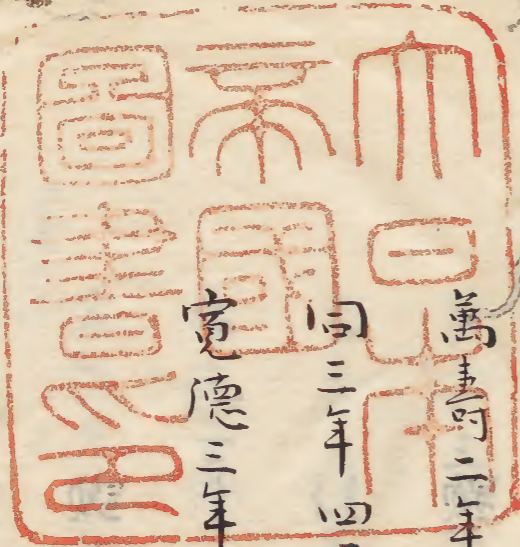 大日本
帝國
圖書印
萬壽二年
同三年四
寛德三年